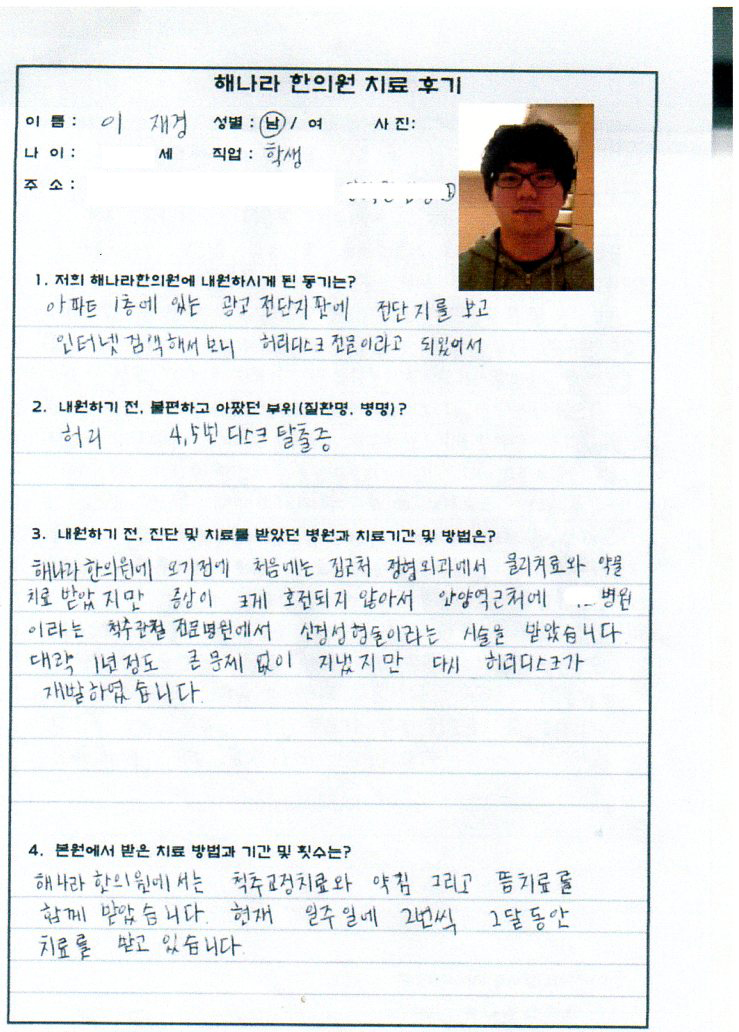 해나라 한의원 치료 후기
이 름 : 이 재경 성별 : 남 / 여 사 진:
나 이 : 세 직업 : 학생
주 소 :
1. 저희 해나라한의원에 내원하시게 된 동기는?
아파트 1층에 있는 광고 전단지판에 전단지를 보고
인터넷 검색해서 보니 허리디스크 전문이라고 되있어서
2. 내원하기 전, 불편하고 아팠던 부위(질환명, 병명)?
허리 4,5번 디스크 탈출증
3. 내원하기 전, 진단 및 치료를 받았던 병원과 치료기간 및 방법은?
해나라 한의원에 오기전에 처음에는 집근처 정형외과에서 물리치료와 약물
치료 받았지만 증상이 크게 호전되지 않아서 안양역근처에 병원
이라는 척추관절 전문병원에서 신경성형술이라는 시술을 받았습니다.
대략 1년정도 큰 문제 없이 지냈지만 다시 허리디스크가
재발하였습니다.
4. 본원에서 받은 치료 방법과 기간 및 횟수는?
해나라 한의원에서는 척추교정치료와 약침 그리고 뜸치료를
함께 받았습니다. 현재 일주일에 2번씩 2달동안
치료를 받고 있습니다.